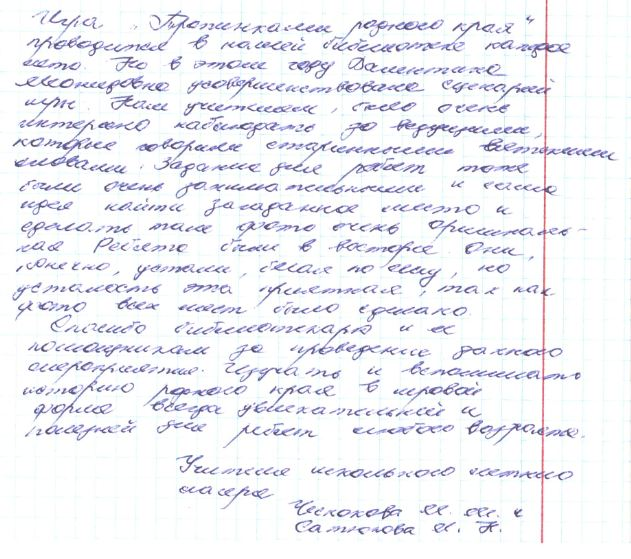 Игра „Тропинками родного края"
проводится в нашей библиотеке каждое
лето. Но в этом году Валентина
Леонидовна усовершенствовала сценарий
игры. Нам учителям, было очень
интересно наблюдать за ведущими,
которые говорили старинными вятскими
словами. Задание для ребят тоже
были очень занимательными и сама
идея найти загаданное место и
сделать там фото очень оригиналь-
ная Ребята были в восторге. Они,
конечно, устали, бегая по селу, но
усталость эта приятная, так как
фото всех мест было сделано.
Спасибо библиотекарю и её
помощникам за проведение данного
мероприятия. Изучать и вспоминать
историю родного края в игровой
форме всегда увлекательней и
полезней для ребят любого возраста.
Учителя школьного летнего
лагеря
М. М. и
И. Н.